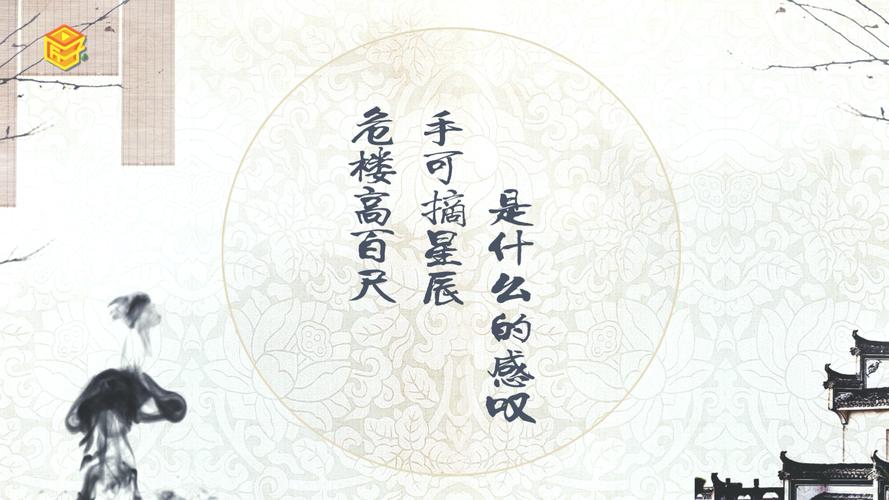 危楼高百尺
手可摘星辰
是什么的感叹